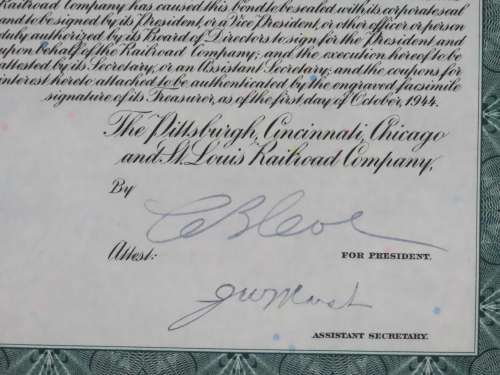 Railroad Company has caused this bond to be sealed with its corporate seal
and to be signed by its President, or a Vice President, or other officer or person
duly authorized by its Board of Directors to sign for the President and
upon behalf of the Railroad Company; and the execution hereof to be
attested by its Secretary, or an Assistant Secretary; and the coupons for
interest hereto attached to be authenticated by the engraved facsimile
signature of its Treasurer, as of the first day of October, 1944.
The Pittsburgh, Cincinnati, Chicago
and St. Louis Railroad Company,
By
Attest:
FOR PRESIDENT.
ASSISTANT SECRETARY.